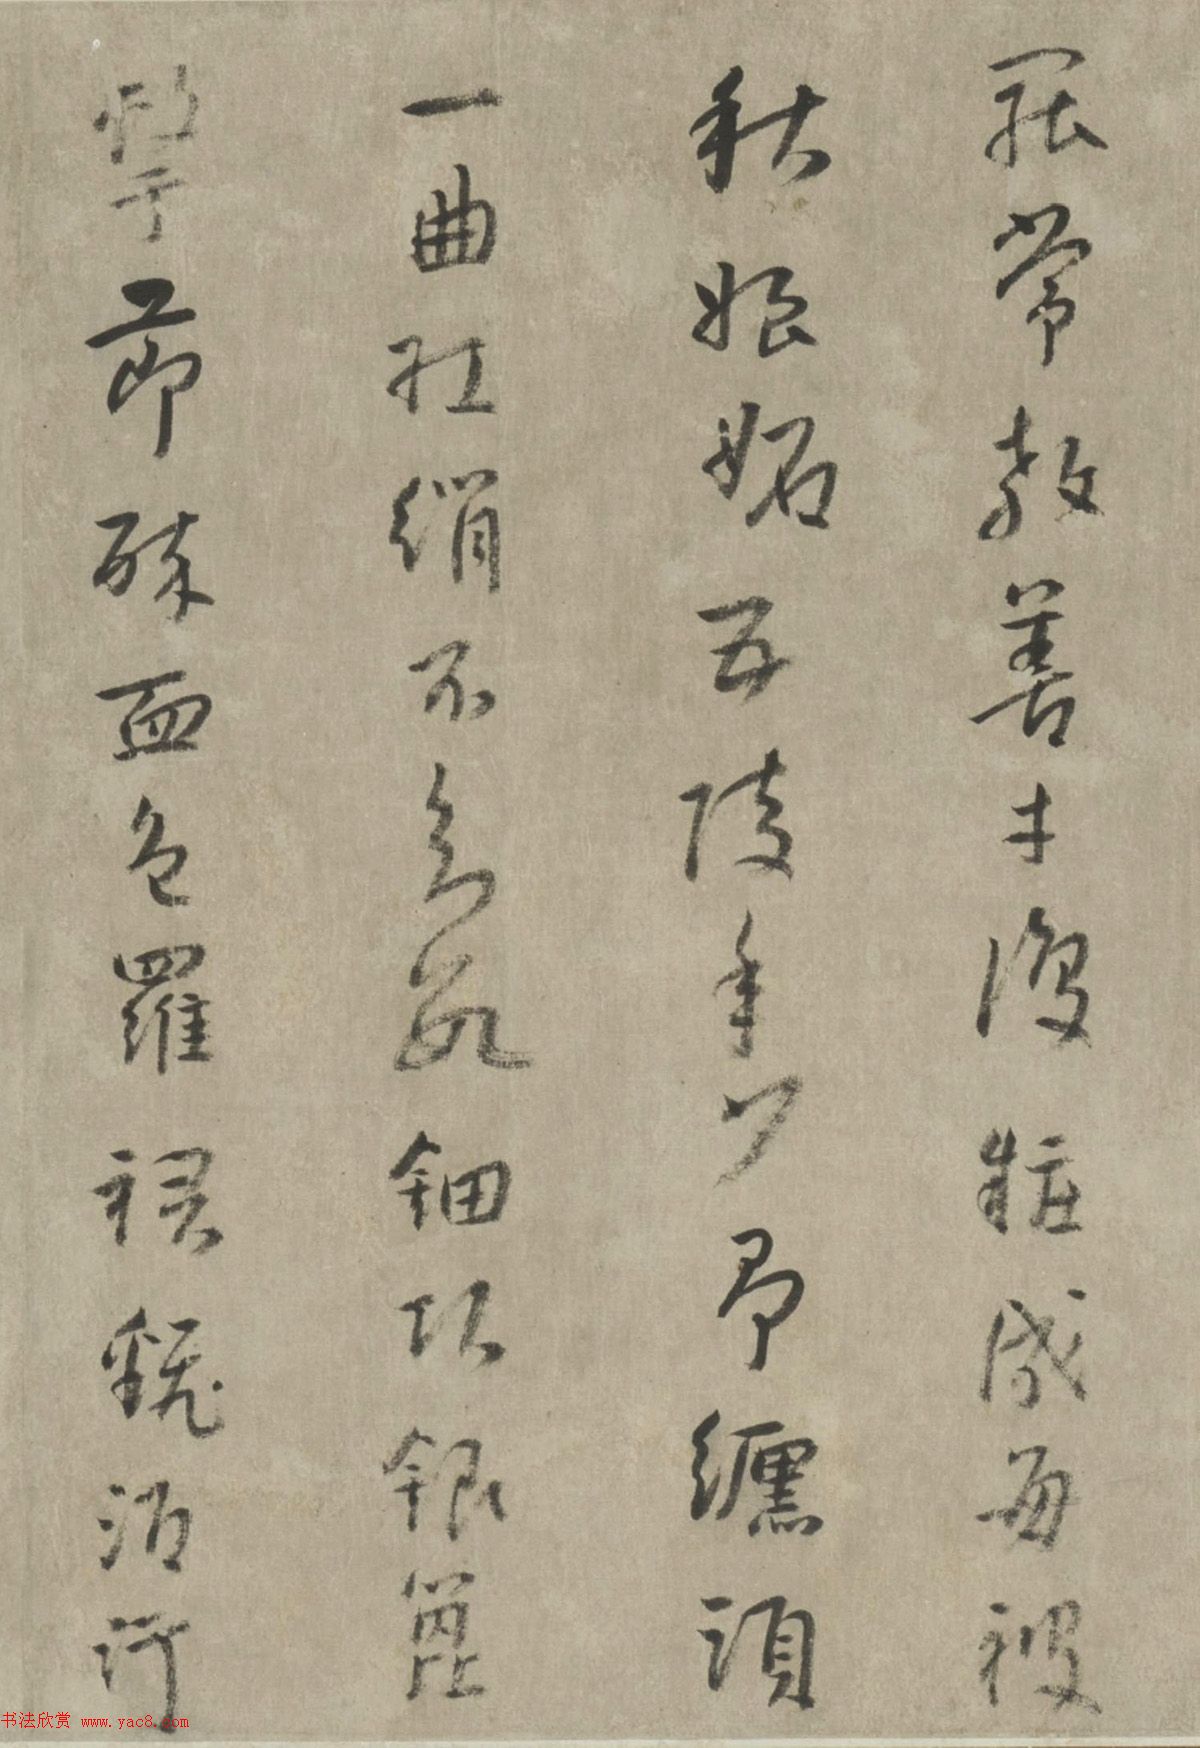 罷常教善才伏粧成每被
秋娘妬五陵年少爭纏頭
一曲紅綃不知數鈿頭銀篦
擊節碎血色羅裙翻酒汙
书法欣赏 www.yac8.com